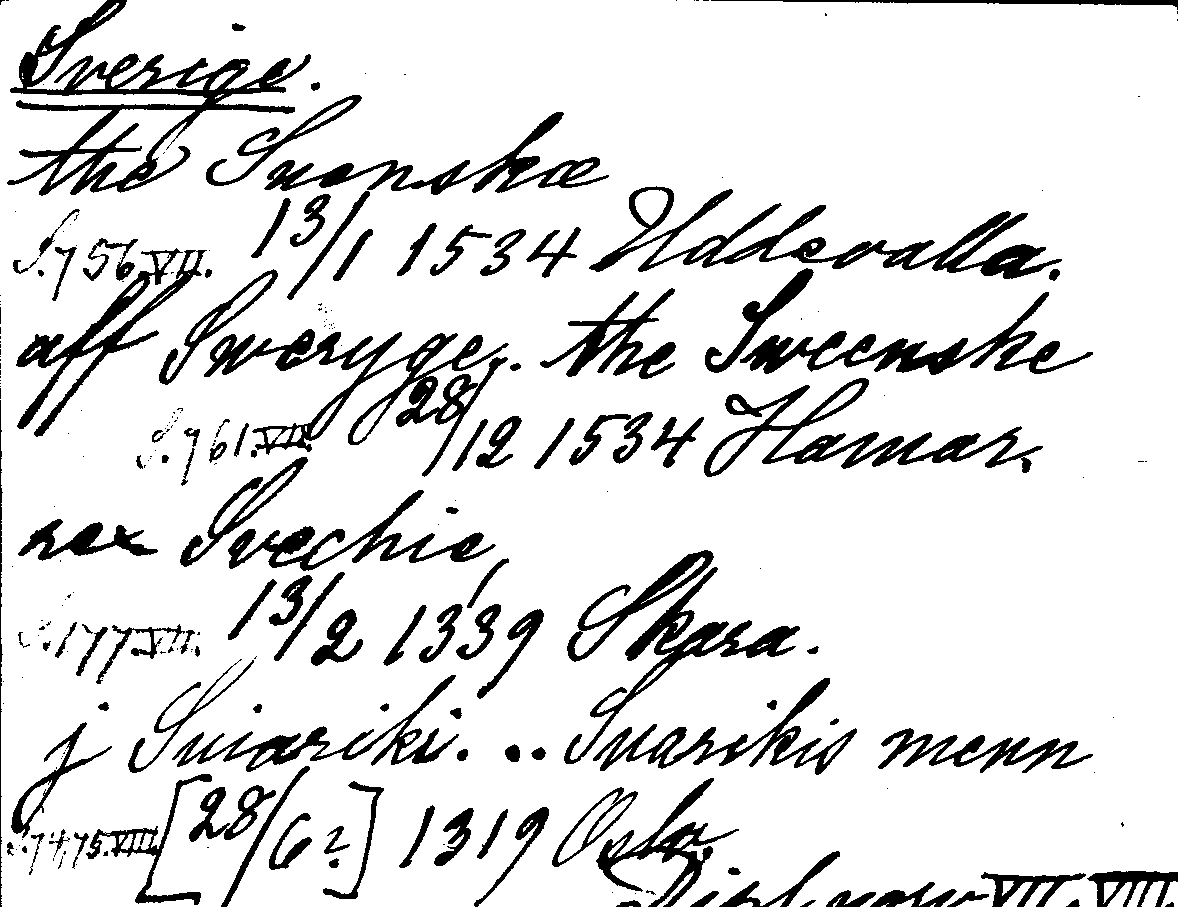 Sverige.
the Suenskæ
S.756.VII. 13/1 1534 Uddevalla.
aff Sweryge. the Sweenske
S.761.VII. 28/12 1534 Hamar.
rex Svechie,
S.177.VII. 13/2 1339 Skara.
j Suiariki. .. Suarikis menn
S.74,75.VIII. [28/6?] 1319 Oslo.
Dipl. norv. VII. VIII.